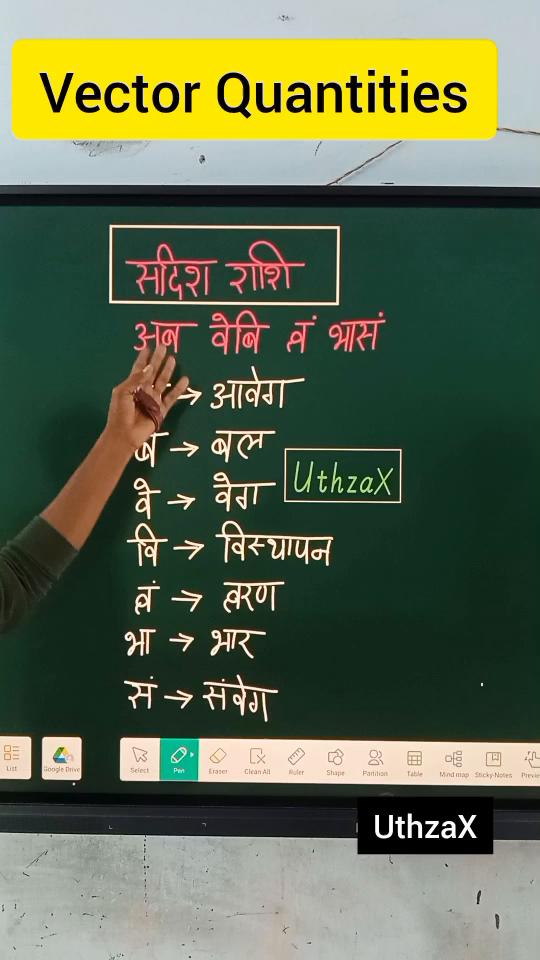 Vector Quantities
सदिश राशि
अब वेबि त्वं भासं
→ आवेग
ब → बल
वे → वेग
UthzaX
वि → विस्थापन
त्वं → त्वरण
भा → भार
सं → संवेग
List
Google Drive
Select
Pen
Eraser
Clean All
Ruler
Shape
Partition
Table
Mind map
Sticky-Notes
UthzaX